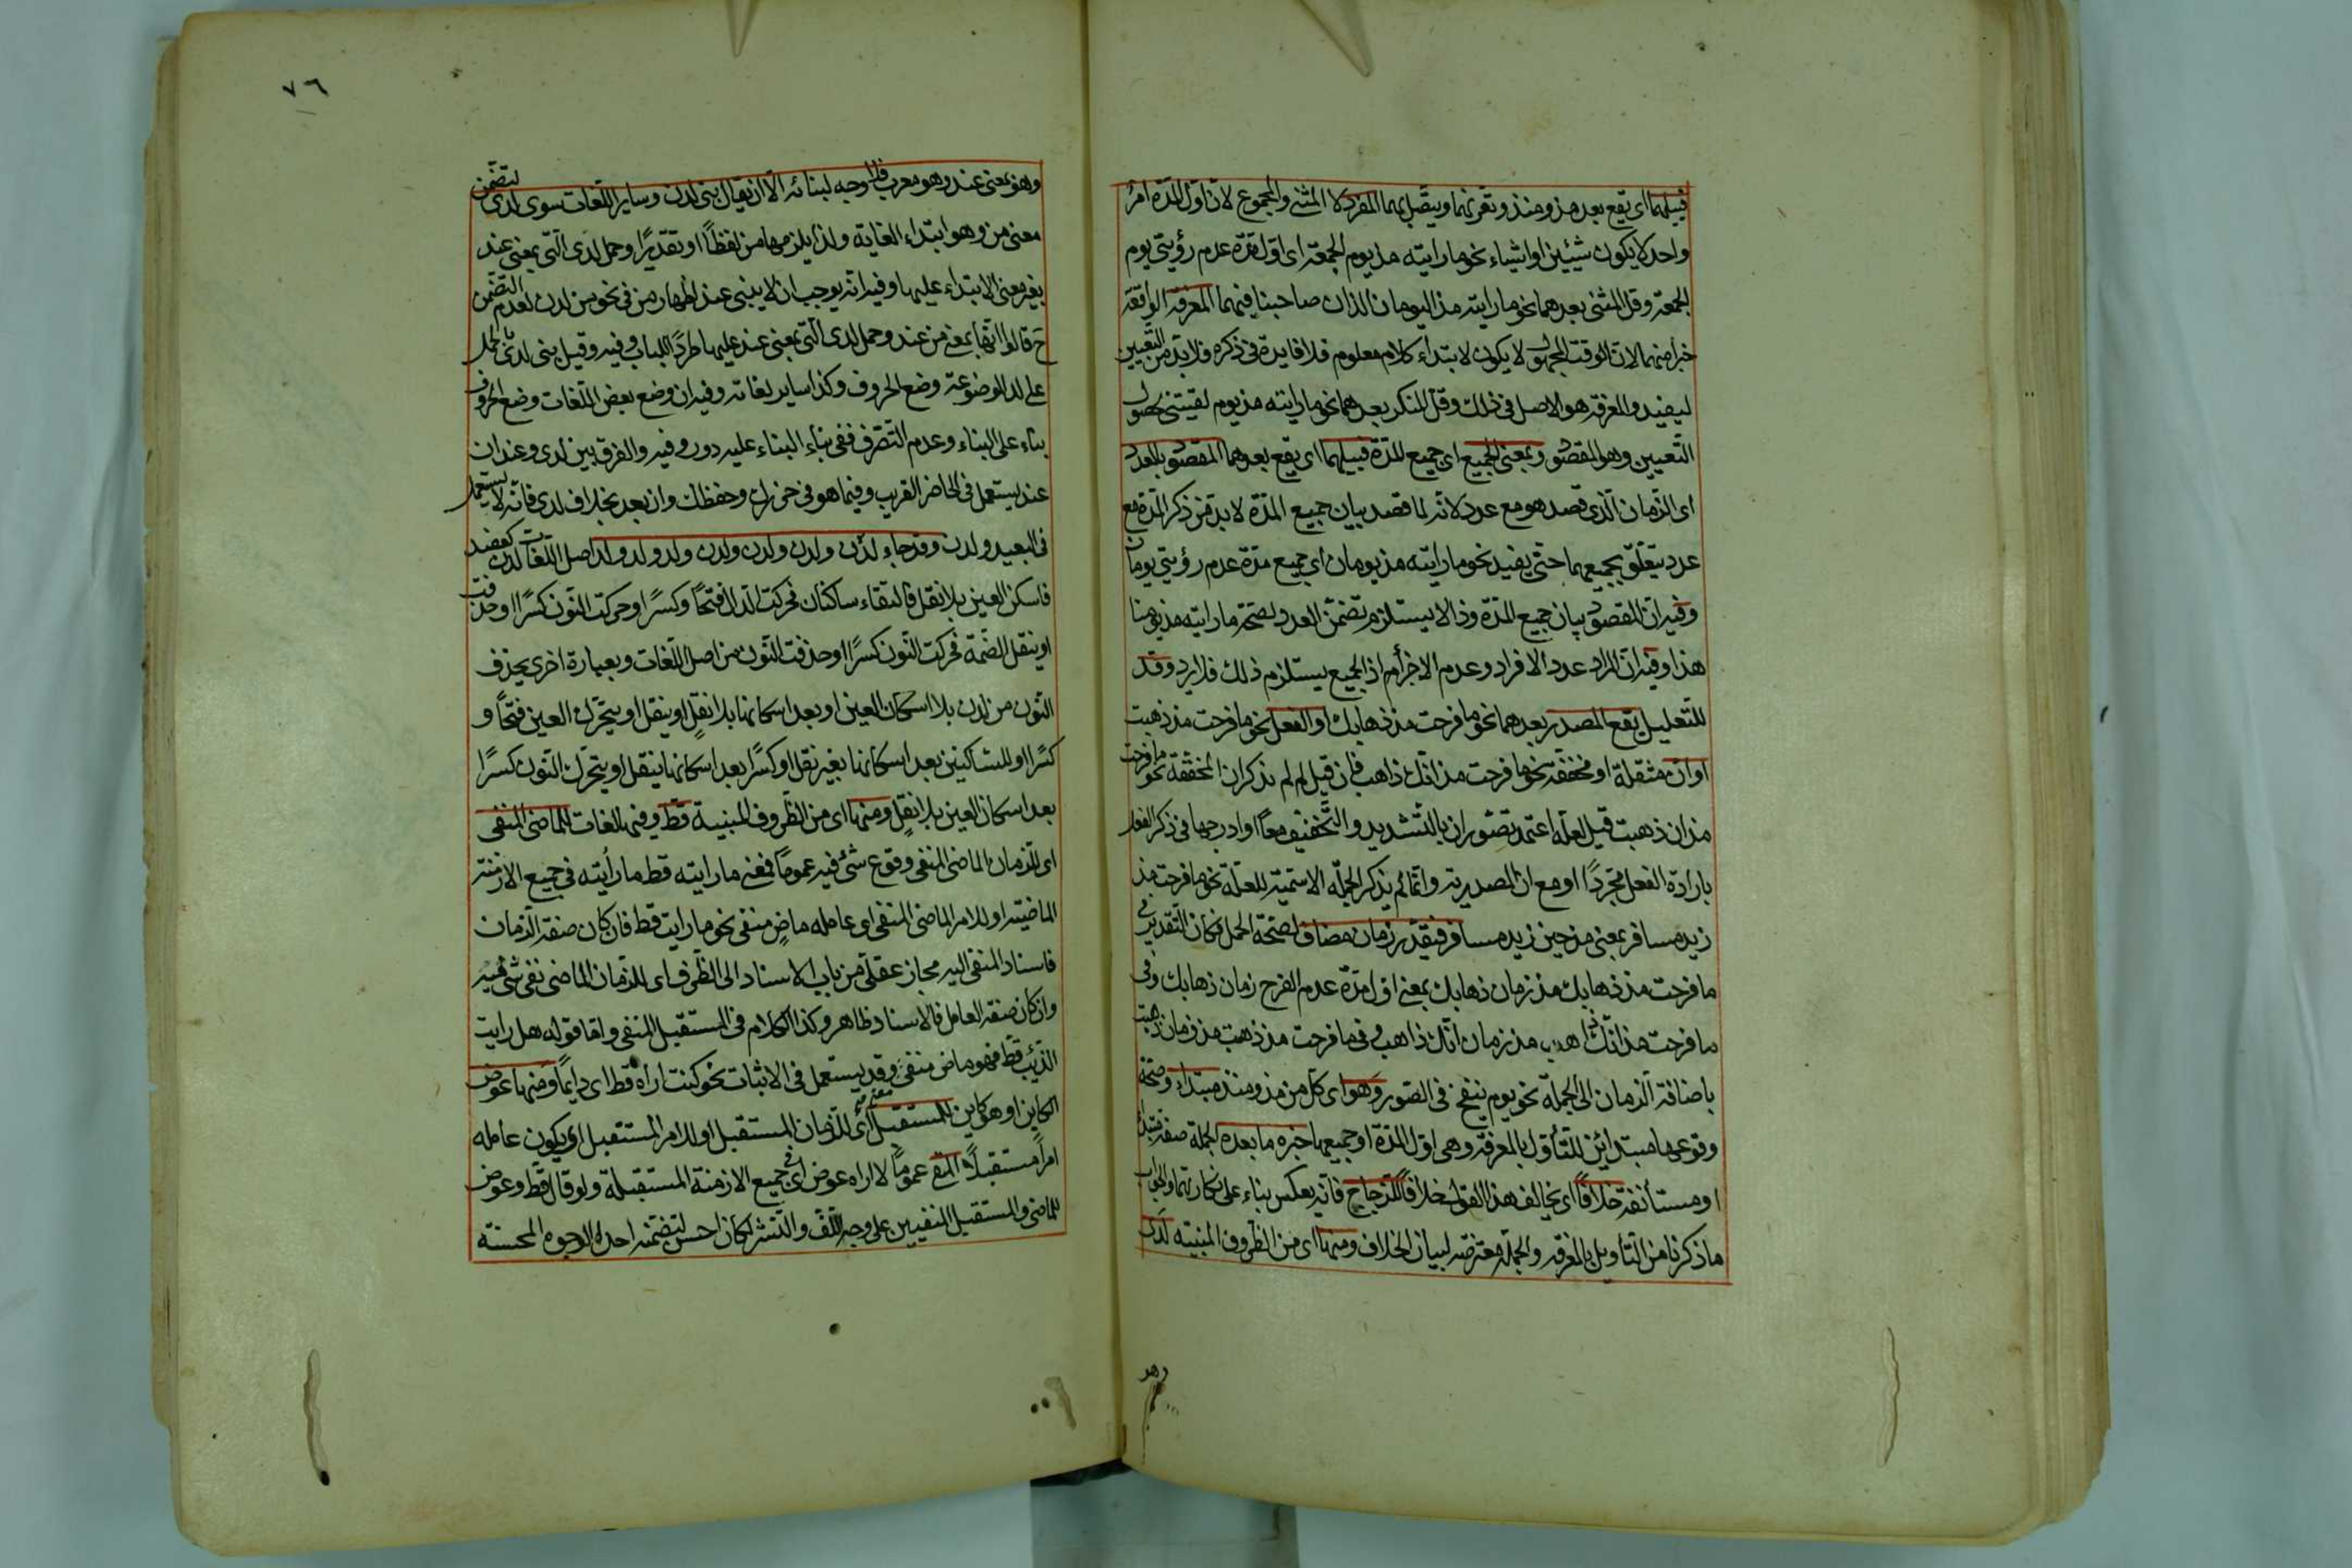 فيليهما اى يقع بعد مذ ومنذ وتعريتهما ويتصل بهما المفرد لا المثنى والمجموع لان اول المدة امر
واحد لا يكون شيئين او اشياء نحو ما رايته مذ يوم الجمعة اى اول مدة عدم رؤيتى يوم
الجمعة وقل المثنى بعدهما نحو ما رايته مذ اليومان اللذان صاحبنا فيهما المعرفة الواقعة
خبرا منهما لان الوقت المجهول لا يكون لابتداء كلام معلوم فلا فايدة فى ذكره فلا بد من التعيين
ليفيد والمعرفة هو الاصل فى ذلك وقل المنكر بعدهما نحو ما رايته مذ يوم لقيتنى لحصول
التعيين وهو المقصود وبمعنى الجميع اى جميع المدة فيليهما اى يقع بعدهما المقصود بالعدد
اى الزمان الذى قصد هو مع عدد لانه لما قصد بيان جميع المدة لا بد من ذكر المدة مع
عدد يتعلق بجميعهما حتى يفيد نحو ما رايته مذ يومان اى جميع مدة عدم رؤيتى يومان
وفيه ان المقصود بيان جميع المدة وذا لا يستلزم تضمن العدد لصحة ما رايته مذ يومنا
هذا وفيه ان المراد عدد الافراد وعدم الاجزاء اذ الجميع يستلزم ذلك فلا يرد وقد
للتعليل يقع المصدر بعدهما نحو ما فرحت مذ ذهابك او الفعل نحو ما فرحت مذ ذهبت
او ان مثقلة او مخففة نحو ما فرحت مذ انك ذاهب فان قيل لم لم يذكر ان المخففة نحو ما فرحت
مذ ان ذهبت قيل لعله اعتمد تصور ان بالتشديد والتخفيف معا او ادرجها فى ذكر الفعل
بارادة الفعل مجردا او مع ان المصدرية وانما لم يذكر الجملة الاسمية للعلة نحو ما فرحت مذ
زيد مسافر بمعنى مذ حين زيد مسافر فيقدر زمان مضاف لصحة الحمل فكان التقدير فى
ما فرحت مذ ذهابك مذ زمان ذهابك بمعنى اول مدة عدم الفرح زمان ذهابك وفى
ما فرحت مذ انك ذاهب مذ زمان انك ذاهب وفى ما فرحت مذ ذهبت مذ زمان ذهبت
باضافة الزمان الى الجملة نحو يوم ينفخ فى الصور وهو اى كل من مذ ومنذ مبتداء وصحة
وقوعهما مبتدائين للتأول بالمعرفة وهى اول المدة او جميعها خبره ما بعده الجملة صفة مبتداء
او مستأنفة خلافا اى يخالف هذا القول خلافا للزجاج فانه يعكس بناء على نكارتهما والجواب
ما ذكرنا من التأويل بالمعرفة والجملة معترضة لبيان الخلاف ومنها اى من الظروف المبنية لدى
وهو
٧٦
وهو بمعنى عند وهو معرب فلا وجه لبنائه الا ان يقال بنى لدن وساير اللغات سوى لدى لتضمن
معنى من وهو ابتداء الغاية ولذا يلزمها من لفظا او تقديرا وحمل لدى التى بمعنى عند
بغير معنى الابتداء عليها وفيه انه يوجب ان لا يبنى عند اظهار من فى نحو من لدن لعدم التضمن
ح قالوا انها بمعنى من عند وحمل لدى التى بمعنى عند عليها طردا للباب وفيه وقيل بنى لدى بالحمل
على لد الموضوعة وضع الحروف وكذا ساير لغاته وفيه ان وضع بعض اللغات وضع الحروف
بناء على البناء وعدم التصرف ففى بناء البناء عليه دور وفيه والفرق بين لدى وعند ان
عند يستعمل فى الحاضر القريب وفيما هو فى حرزك وحفظك وان بعد بخلاف لدى فانه لا يستعمل
فى البعيد ولدن وقد جاء لدن ولدن ولدن ولدن ولد ولد ولد اصل اللغات لدن كعضد
فاسكن العين بلا نقل فالتقاء ساكنان فحركت الدال فتحا وكسرا او حركت النون كسرا او حذفت
او بنقل الضمة فحركت النون كسرا او حذفت النون من اصل اللغات وبعبارة اخرى بحذف
النون من لدن بلا اسكان العين او بعد اسكانها بلا نقل او بنقل او بتحرك العين فتحا و
كسرا او للساكنين بعد اسكانها بغير نقل او كسرا بعد اسكانها بنقل او بتحرك النون كسرا
بعد اسكان العين بلا نقل ومنها اى من الظروف المبنية قط وفيها لغات للماضى المنفى
اى للزمان الماضى المنفى وقوع شئ فيه عموما فمعنى ما رايته قط ما رأيته فى جميع الازمنة
الماضية او للامر الماضى المنفى اى عامله ماض منفى نحو ما رايت قط فان كان صفة الزمان
فاسناد المنفى اليه مجاز عقلى من باب الاسناد الى الظرف اى للزمان الماضى نفى شئ فيه
وان كان صفة العامل فالاسناد ظاهر وكذا الكلام فى المستقبل المنفى واما قوله هل رايت
الذئب قط فهو ماض منفى وقد يستعمل فى الاثبات نحو كنت اراه قط اى دايما ومنها عوض
الكاين او هو كاين للمستقبل اى للزمان المستقبل او للامر المستقبل اى يكون عامله
امرا مستقبلا المنفى عموما لا اراه عوض اى فى جميع الازمنة المستقبلة ولو قال قط وعوض
للماضى والمستقبل المنفيين على وجه اللف والنشر لكان احسن لتضمنه احد الوجوه المحسنة